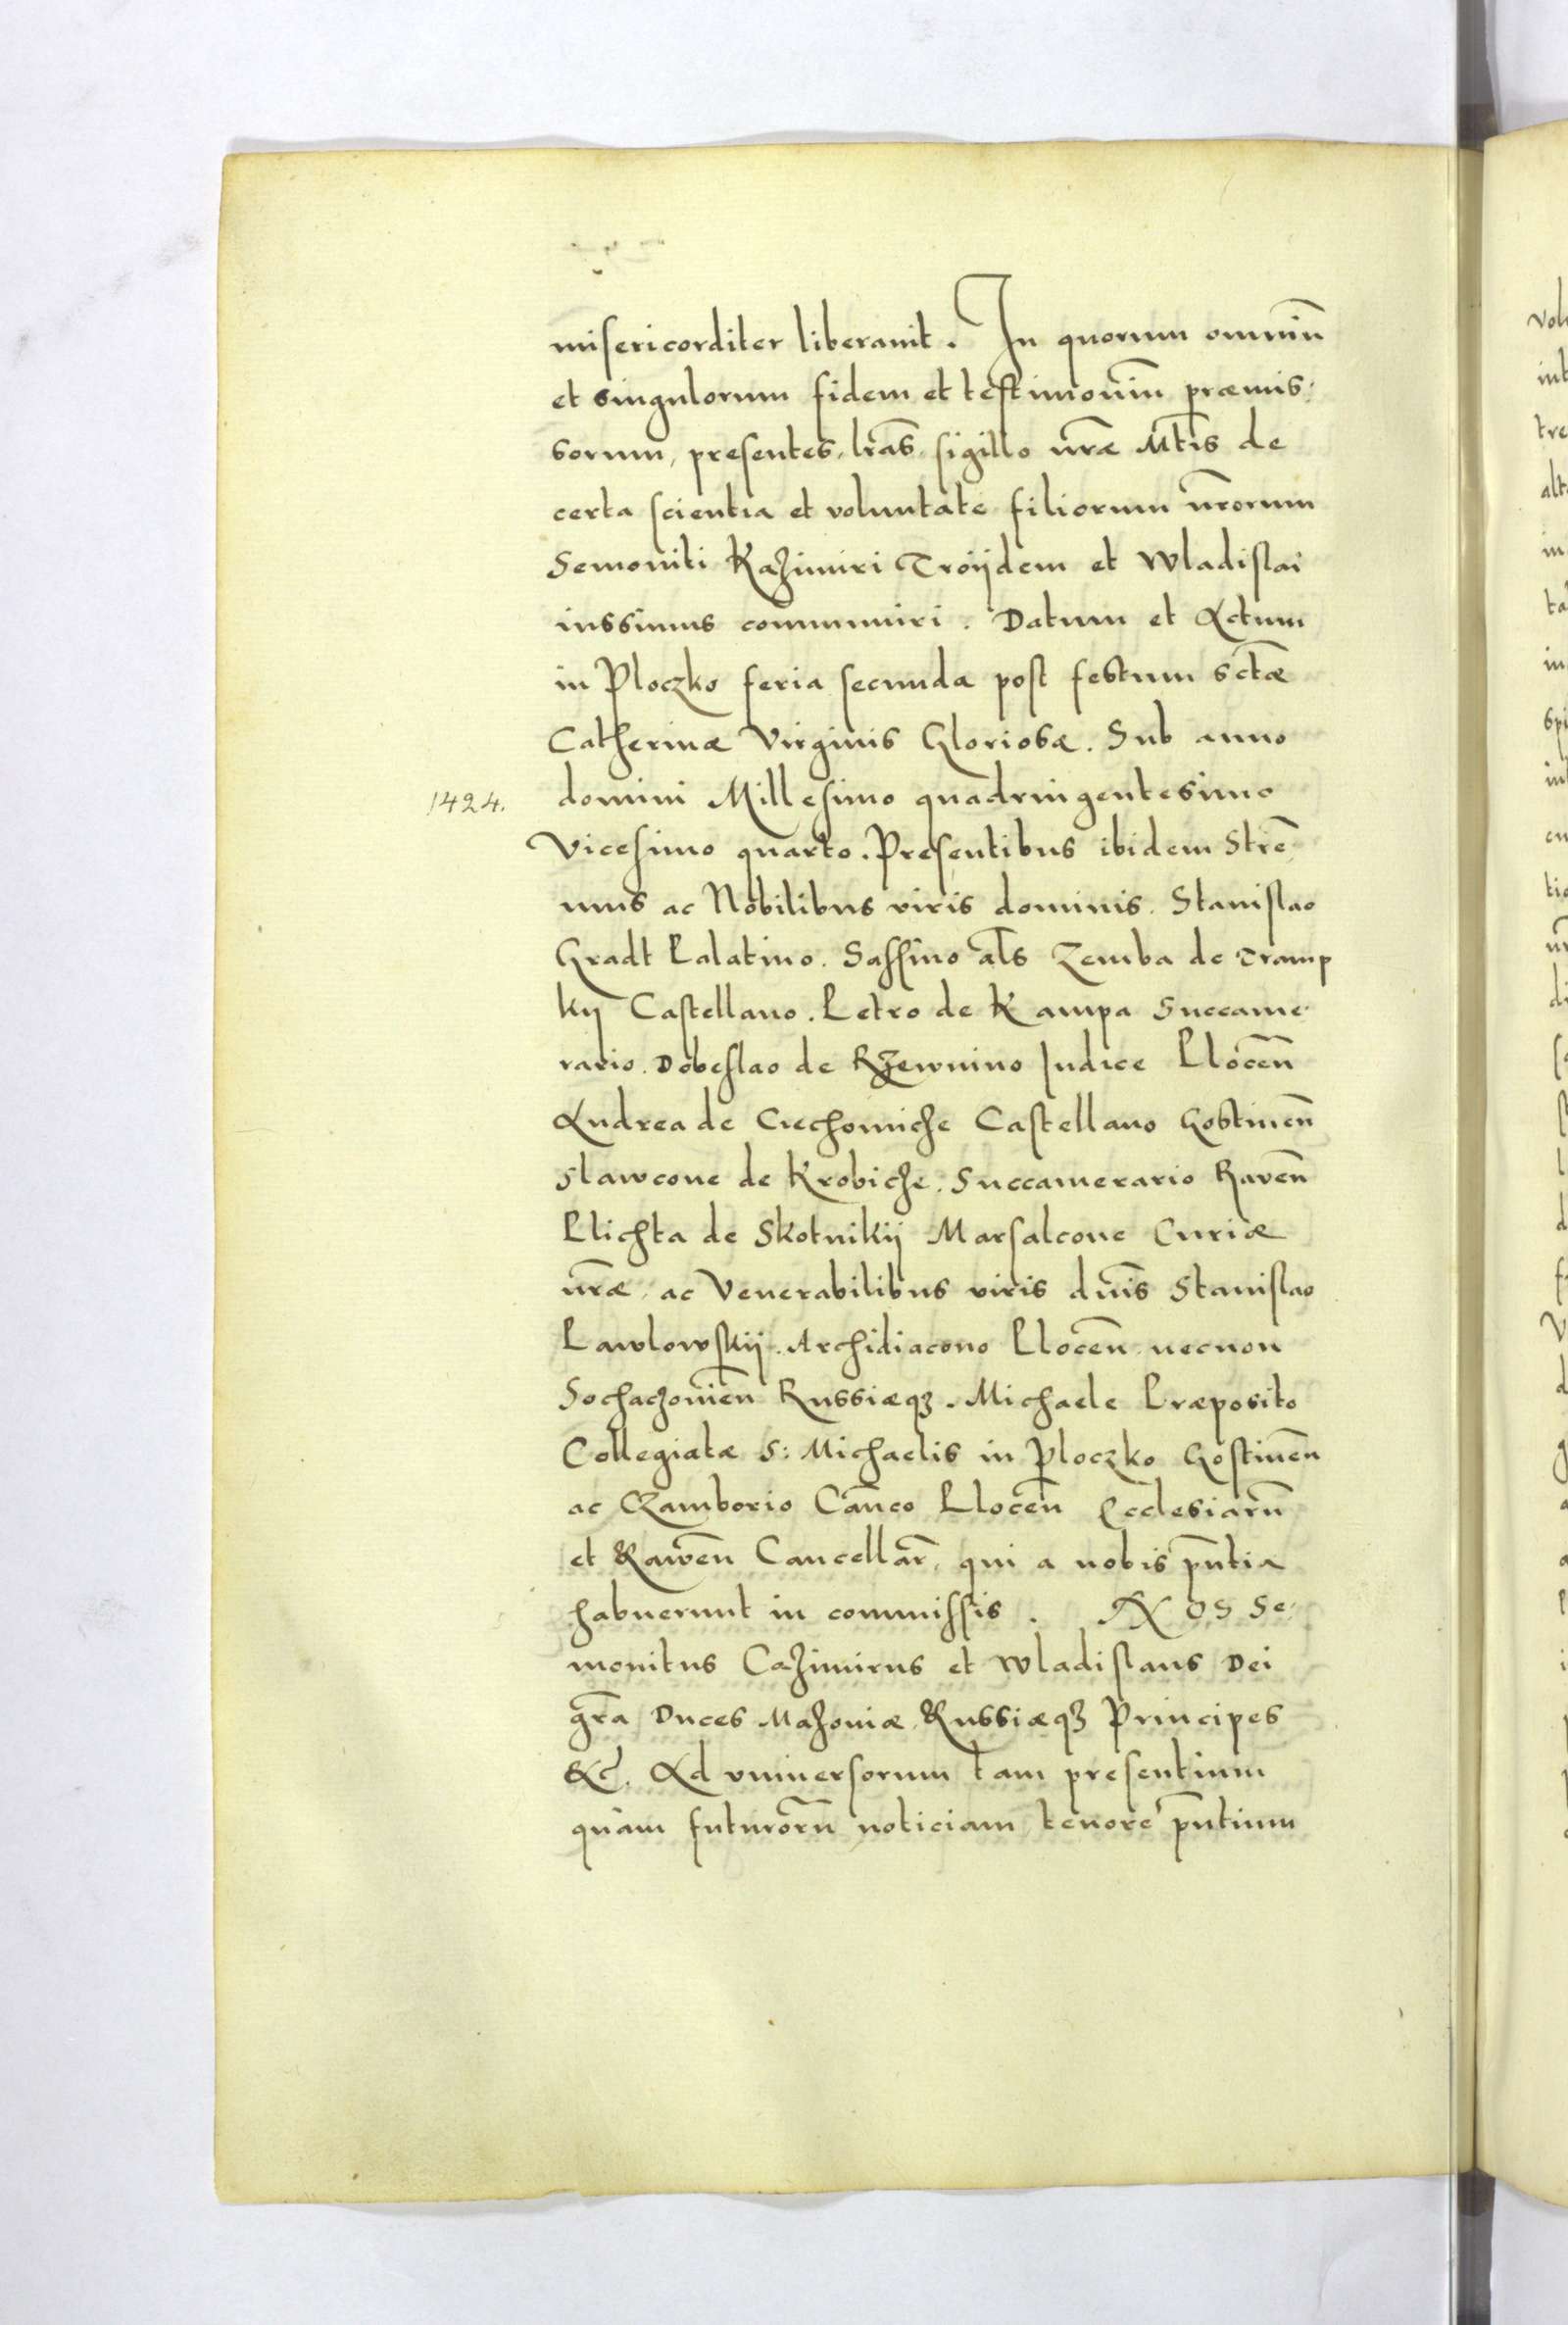 misericorditer liberauit. In quorum omniũ
et singulorum fidem et testimoniũ præmis-
sorum, presentes, lrãs sigillo nræ Mtis de
certa scientia et voluntate filiorum nrorum
Semoviti Kazimiri Troijdem et Wladislai
iussimus communiri. Datum et Actum
in Ploczko feria secunda post festum sctæ
Catherinæ Virginis Gloriosæ. Sub anno
1424. domini Millesimo quadringentesimo
Vicesimo quarto. Presentibus ibidem Stre-
nuis ac Nobilibus viris dominis. Stanislao
Gradt Palatino. Sassino als Zemba de Tramp
kij Castellano. Petro de Kampa Succame-
rario. Dobeslao de Rzewnino Iudice Plocen̄
Andrea de Ciechomicze Castellano Gostinen̄
Slawcone de Krobicze. Succamerario Raven̄
Plichta de Skotnikij Marsalcone Curiæ
nræ, ac Venerabilibus viris dnis Stanislao
Pawlowskij. Archidiacono Plocen̄ necnon
Sochaczovien̄ Russiæqꝫ. Michaele Præposito
Collegiatæ S: Michaelis in Ploczko Gostinen̄
ac Czamborio Canco Plocen̄ Ecclesiarũ
et Rawen̄ Cancellar̄, qui a nobis pñtia
habuerunt in commissis. NOS Se-
monitus Cazimirus et Wladislaus Dei
grã Duces Mazoniæ Russiæqꝫ Principes
&c. Ad vniuersorum tam presentium
quàm futurorũ noticiam tenore pñtium